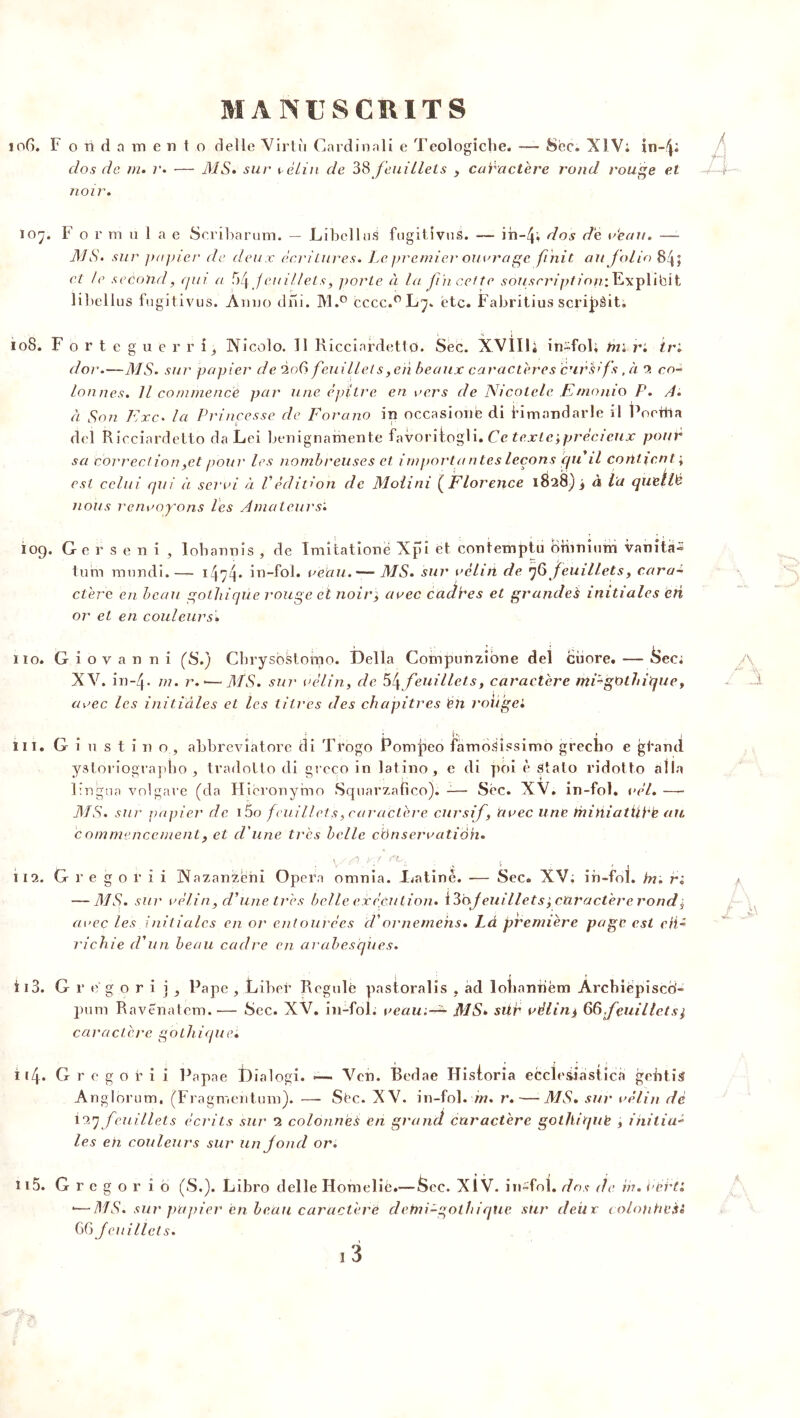 MANUSCRITS
106. Fondamento delle Virtù Cardinali e Teologiche. — Sec. XIV. in-4.
dos de m. r. — MS. sur vélin de 38 feuillets, caractère rond rouge et
noir.
107. Formulae Scribarum. — Libellus fugitivus. — in-4. dos de veau. —
MS. sur papier de deux écritures. Le premier ouvrage finit au folio 84;
et le second, qui a 54 feuillets, porte à la fin cette souscription: Explibit
libellus fugitivus. Anno dñi. M.º cccc.º L7. etc. Fabritius scripsit.
108. Forteguerri, Nicolo. Il Ricciardetto. Sec. XVIII. in-fol. m. r. tr.
dor.—MS. sur papier de 206 feuillets, en beaux caractères cursifs, à 2 co-
lonnes. Il commence par une épître en vers de Nicotele Emonio P. A.
à Son Exc. la Princesse de Forano in occasione di rimandarle il Poema
del Ricciardetto da Lei benignamente favoritogli. Ce texte, précieux pour
sa correction, et pour les nombreuses et importantes leçons qu'il contient,
est celui qui à servi à l'édition de Molini (Florence 1828), à la quelle
nous renvoyons les Amateurs.
109. Gerseni, Iohannis, de Imitatione Xp̄i et contemptu omnium vanita-
tum mundi. — 1474. in-fol. veau. — MS. sur vélin de 76 feuillets, cara-
ctère en beau gothique rouge et noir, avec cadres et grandes initiales en
or et en couleurs.
110. Giovanni (S.) Chrysostomo. Della Compunzione del cuore. — Sec.
XV. in-4. m. r. — MS. sur vélin, de 54 feuillets, caractère mi-gothique,
avec les initiales et les titres des chapitres en rouge.
111. Giustino, abbreviatore di Trogo Pompeo famosissimo grecho e grand
ystoriographo, tradotto di greco in latino, e di poi è stato ridotto alla
lingua volgare (da Hieronymo Squarzafico). — Sec. XV. in-fol. vél. —
MS. sur papier de 150 feuillets, caractère cursif, avec une miniature au
commencement, et d'une très belle conservation.
112. Gregorii Nazanzeni Opera omnia. Latine. — Sec. XV. in-fol. m. r.
— MS. sur vélin, d'une très belle exécution. 130 feuillets, caractère rond,
avec les initiales en or entourées d'ornemens. La première page est en-
richie d'un beau cadre en arabesques.
113. Gregorij, Pape, Liber Regule pastoralis, ad Iohannem Archiepisco-
pum Ravenatem. — Sec. XV. in-fol. veau. — MS. sur vélin, 66 feuillets,
caractère gothique.
114. Gregorii Papae Dialogi. — Ven. Bedae Historia ecclesiastica gentis
Anglorum. (Fragmentum). — Sec. XV. in-fol. m. r. — MS. sur vélin de
127 feuillets écrits sur 2 colonnes en grand caractère gothique, initia-
les en couleurs sur un fond or.
115. Gregorio (S.). Libro delle Homelie. — Sec. XIV. in-fol. dos de m. vert.
— MS. sur papier en beau caractère demi-gothique sur deux colonnes.
66 feuillets.
13